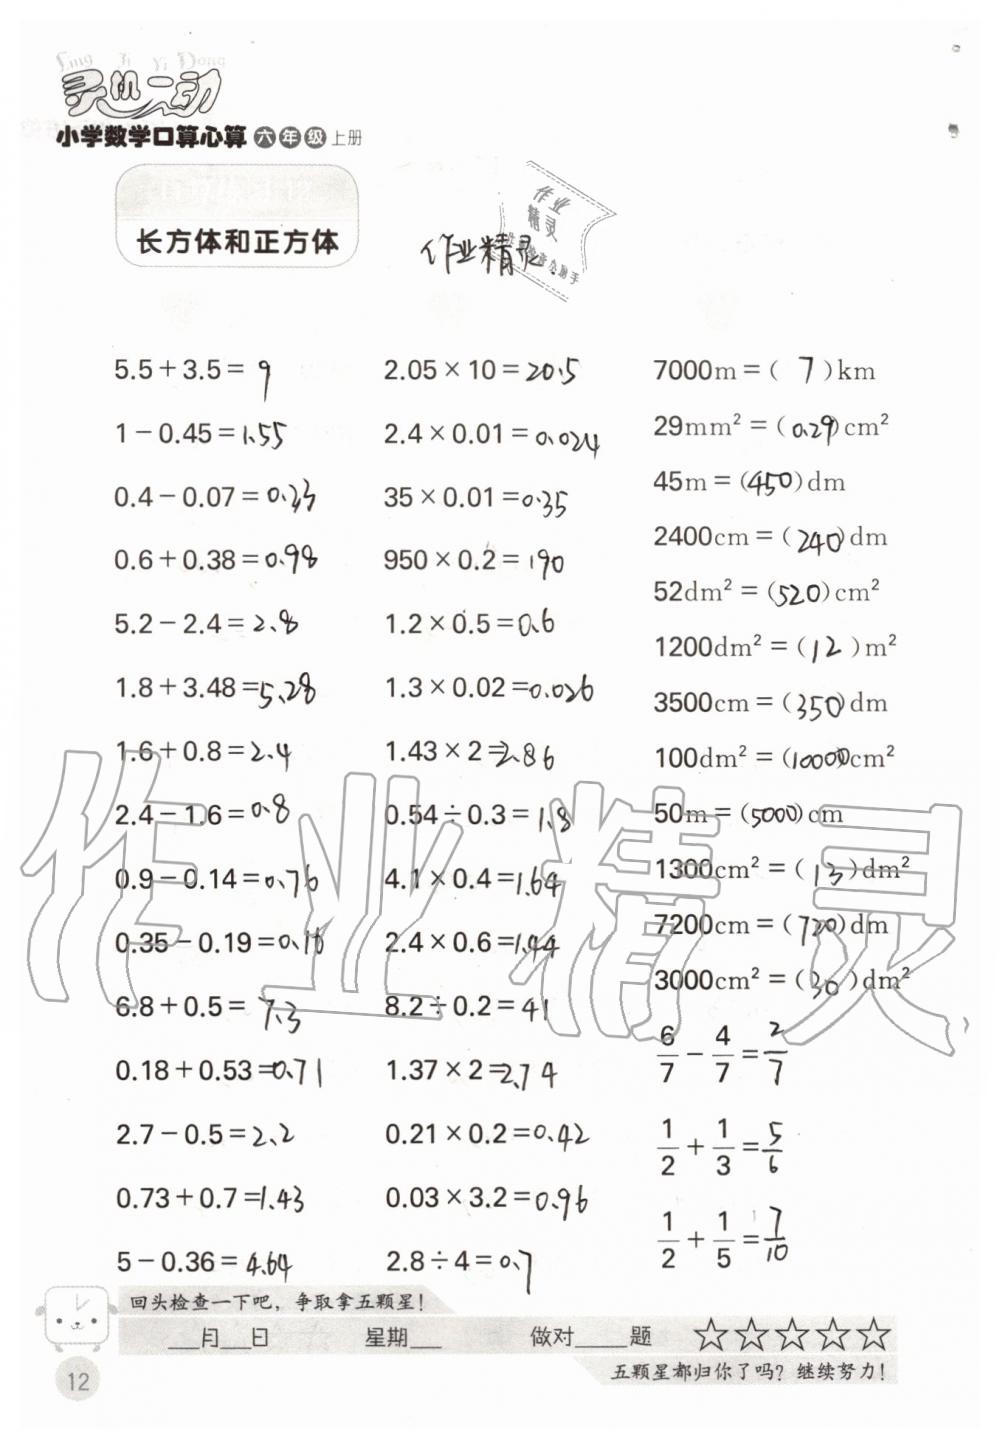 Ling Ji Yi Dong
灵机一动
小学数学口算心算 六年级 上册
长方体和正方体
作业精灵
作业
精灵
5.5+3.5= 9
1-0.45=1.55
0.4-0.07=0.33
0.6+0.38=0.98
5.2-2.4=2.8
1.8+3.48=5.28
1.6+0.8=2.4
2.4-1.6=0.8
0.9-0.14=0.76
0.35-0.19=0.16
6.8+0.5=7.3
0.18+0.53=0.71
2.7-0.5=2.2
0.73+0.7=1.43
5-0.36=4.64
2.05×10=20.5
2.4×0.01=0.024
35×0.01=0.35
950×0.2=190
1.2×0.5=0.6
1.3×0.02=0.026
1.43×2=2.86
0.54÷0.3=1.8
4.1×0.4=1.64
2.4×0.6=1.44
8.2÷0.2=41
1.37×2=2.74
0.21×0.2=0.42
0.03×3.2=0.96
2.8÷4=0.7
7000m=( 7 )km
29mm²=(0.29)cm²
45m=(450)dm
2400cm=(240)dm
52dm²=(520)cm²
1200dm²=(12)m²
3500cm=(350)dm
100dm²=(10000)cm²
50m=(5000)cm
1300cm²=(13)dm²
7200cm=(720)dm
3000cm²=(30)dm²
6/7-4/7=2/7
1/2+1/3=5/6
1/2+1/5=7/10
作业精灵
回头检查一下吧，争取拿五颗星！
___月___日 星期___ 做对____题 ☆☆☆☆☆
五颗星都归你了吗？继续努力！
12